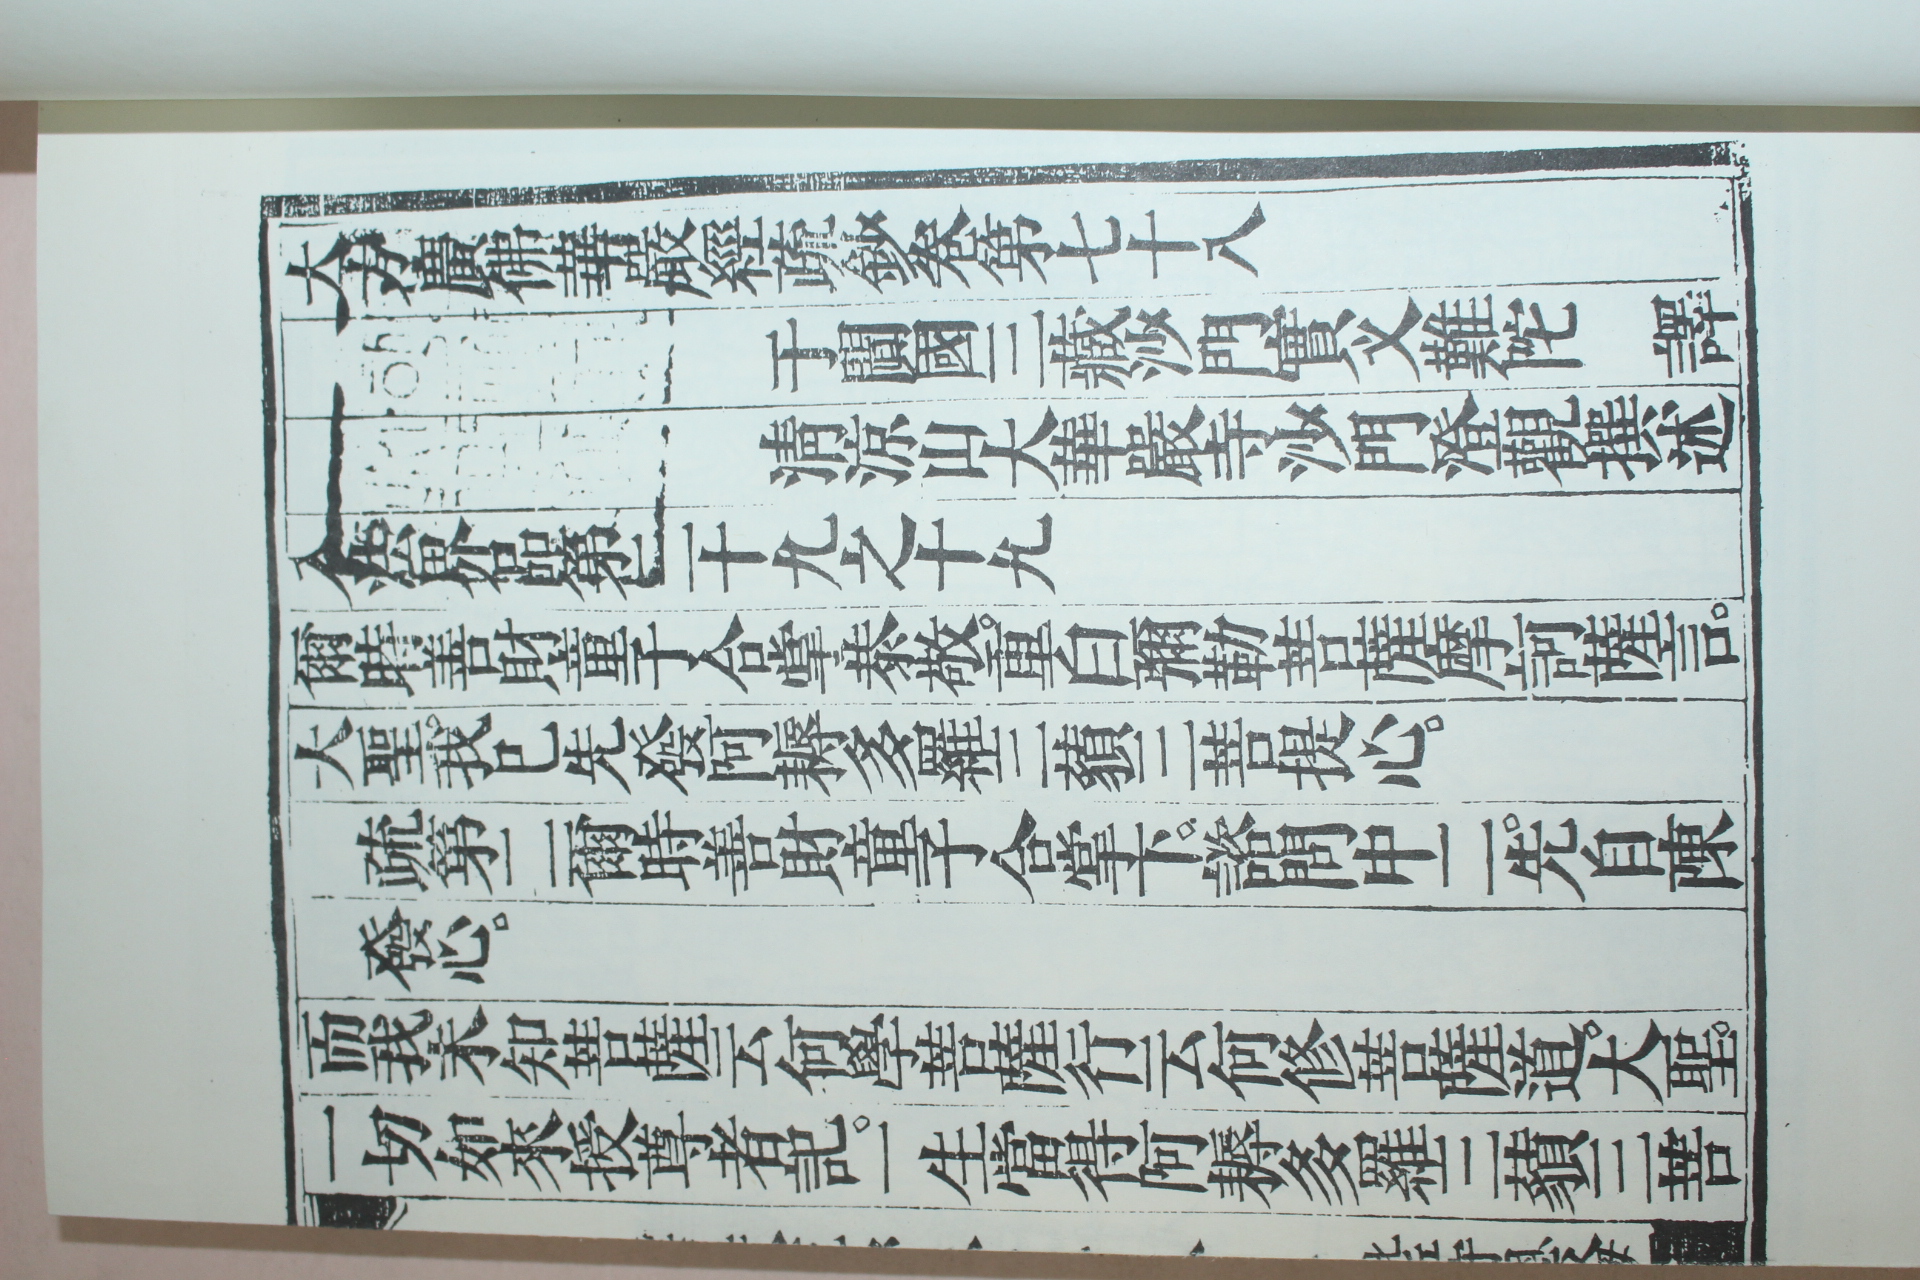 大方廣佛華嚴經疏鈔卷第七十八
于闐國三藏沙門實叉難陀 譯
清涼山大華嚴寺沙門澄觀撰述
入法界品第三十九之十九
爾時善財童子合掌恭敬。重白彌勒菩薩摩訶薩言。
大聖。我已先發阿耨多羅三藐三菩提心。
疏第二爾時善財童子合掌下。諮問中二。一先自陳
發心。
而我未知菩薩云何學菩薩行云何修菩薩道。大聖。
一切如來授尊者記。一生當得阿耨多羅三藐三菩